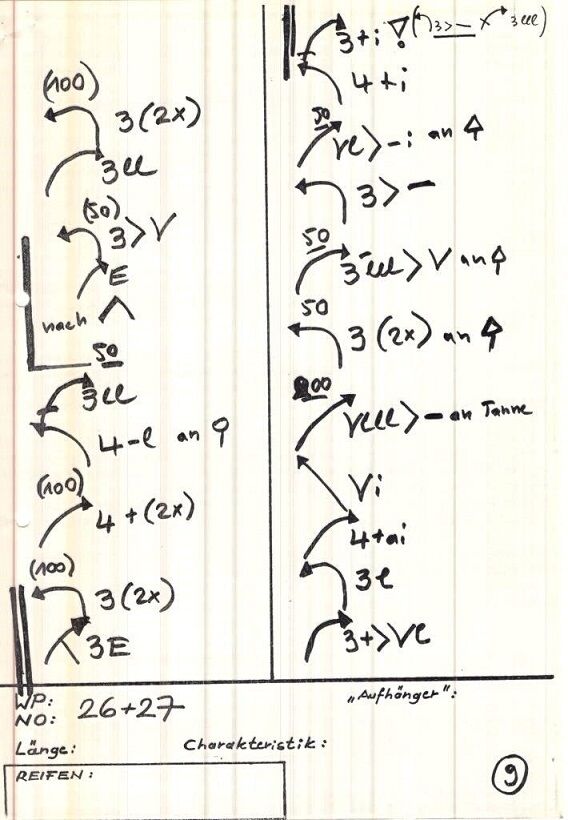 (100)
3(2x)
3ll
(50)
3>V
E
nach
50
3ll
4-l an
(100)
4+(2x)
(100)
3(2x)
3E
3+i ! (3>- x 3lll)
4+i
50
Vl>-i an
3>-
50
>V an
50
3(2x) an
Vlll>- an Tanne
Vi
4+ai
3l
3+>Vl
WP:
NO: 26+27
„Aufhänger":
Länge:
Charakteristik:
REIFEN:
9